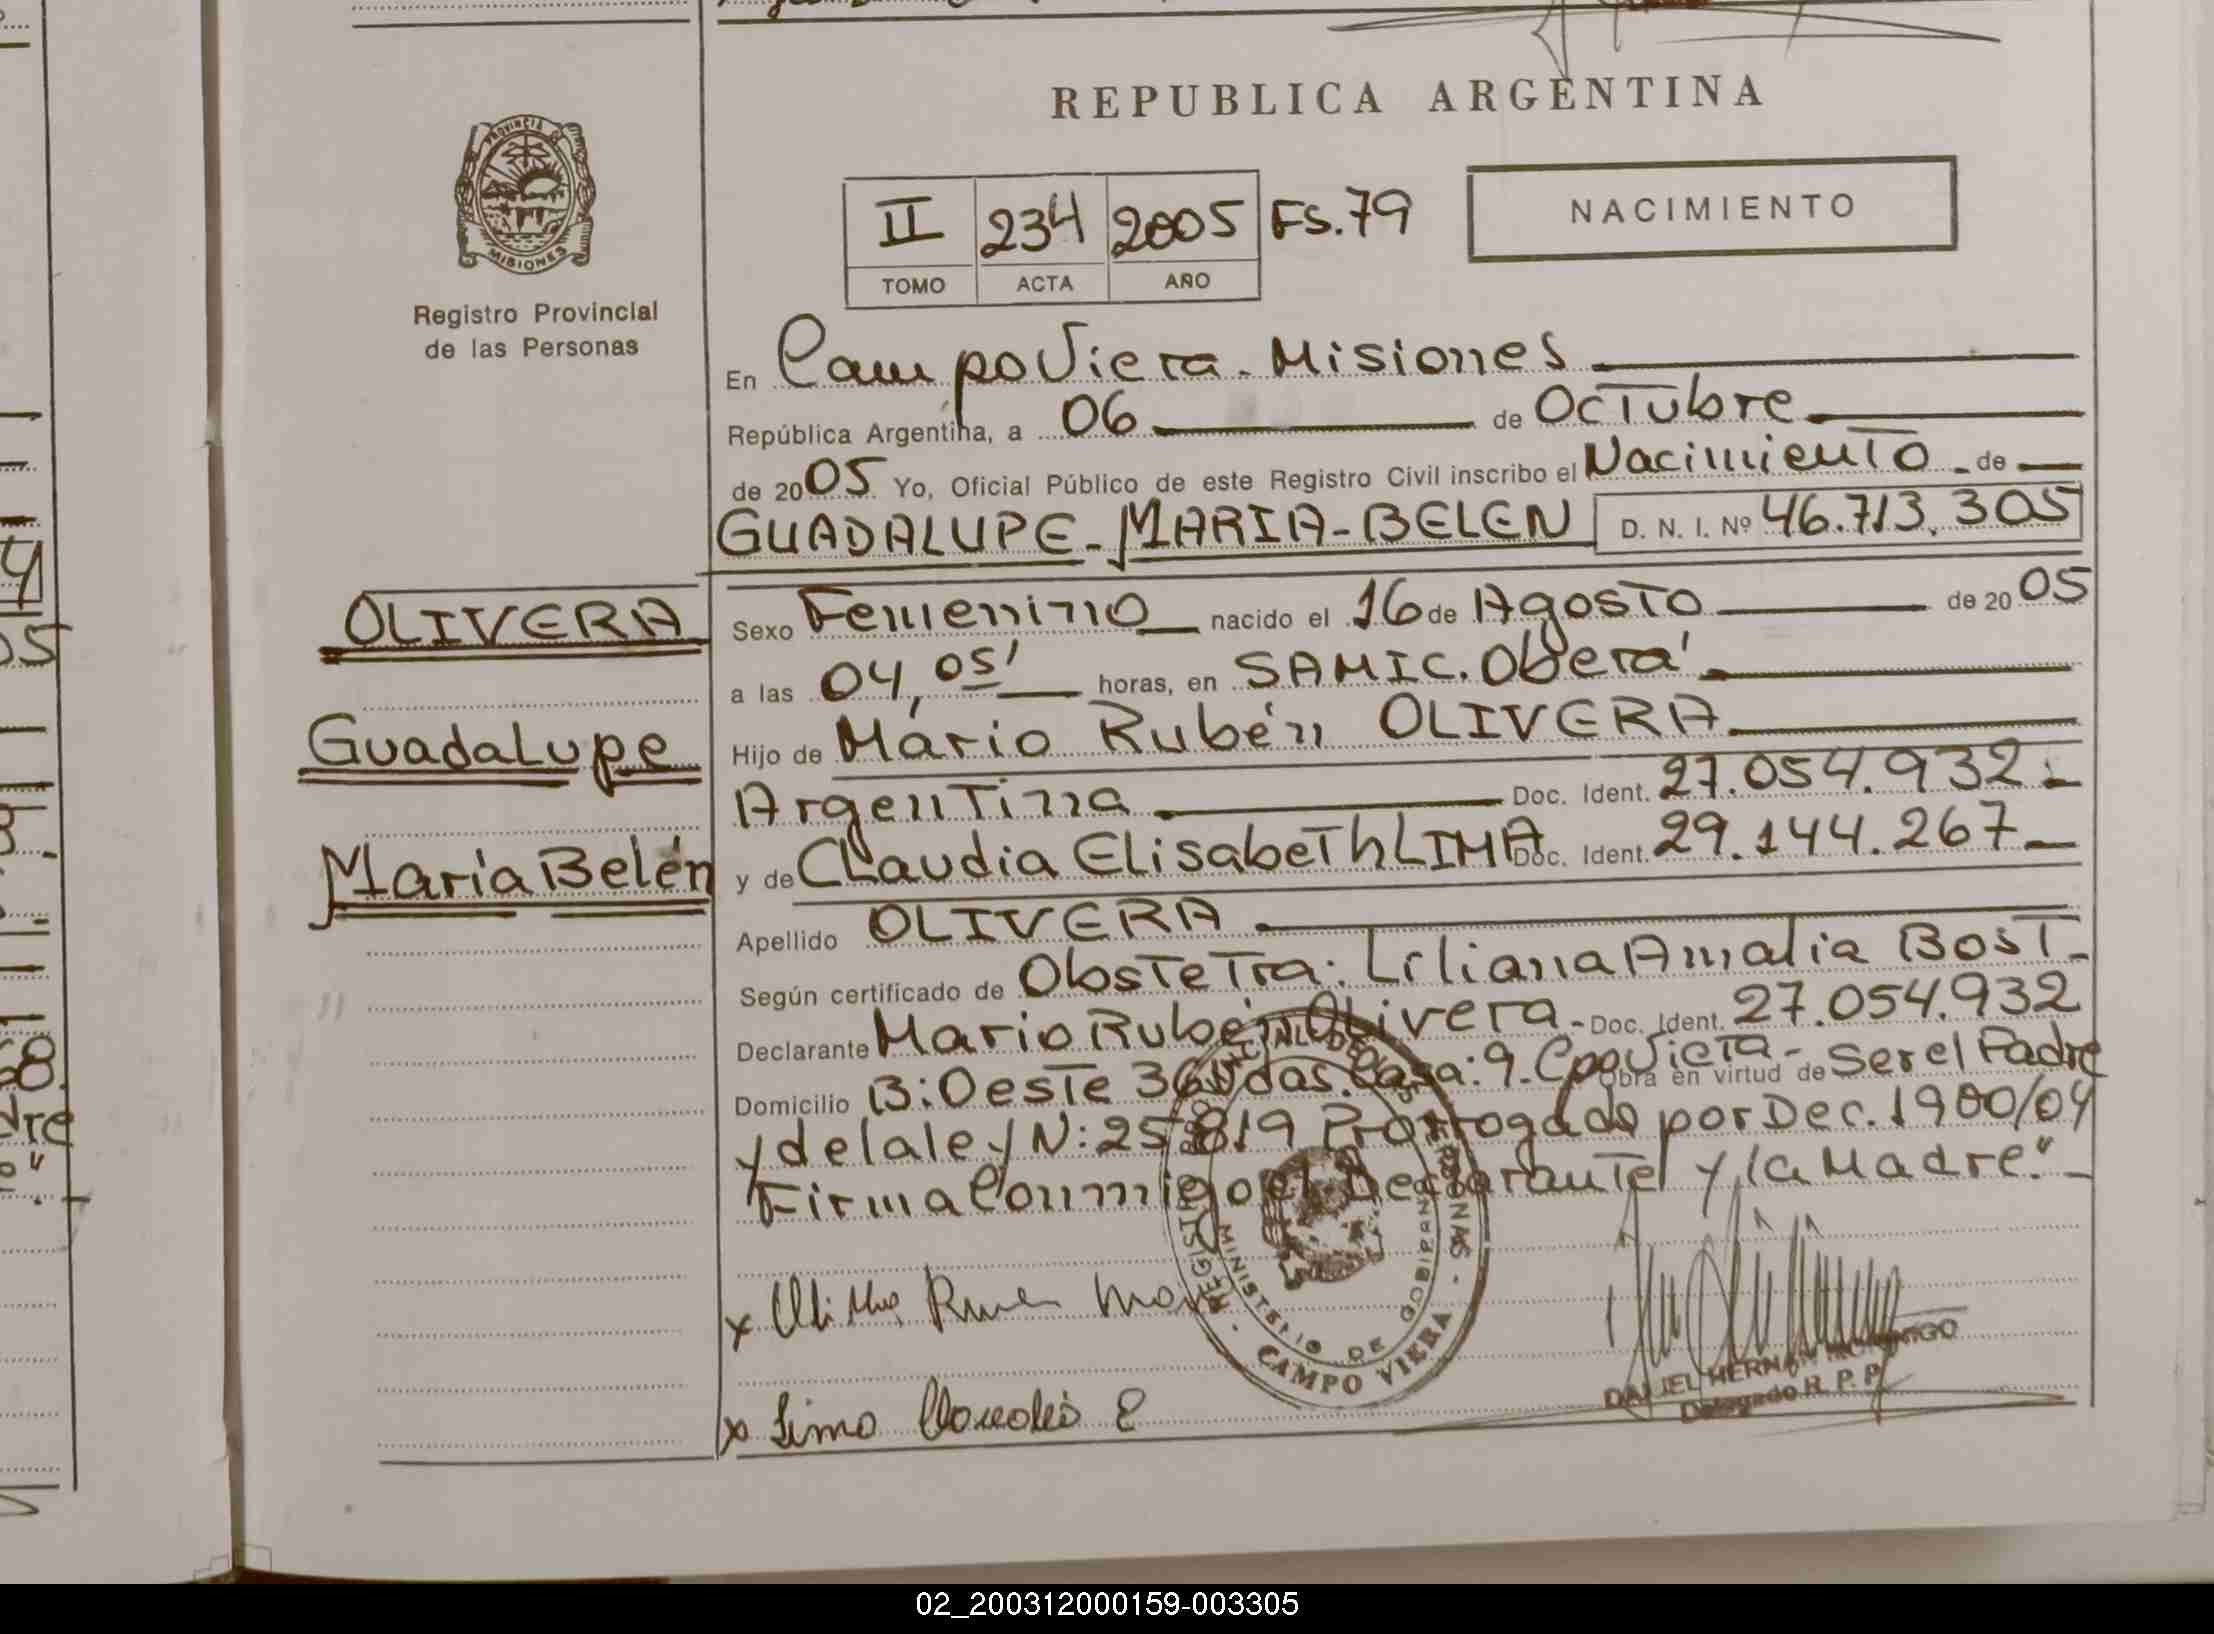 REPUBLICA ARGENTINA
PROVINCIA DE
MISIONES
Registro Provincial
de las Personas
II 234 2005 FS.79
TOMO ACTA AÑO
NACIMIENTO
En Campo Viera - Misiones
República Argentina, a 06 de Octubre
de 2005 Yo, Oficial Público de este Registro Civil inscribo el Nacimiento - de
GUADALUPE - MARIA - BELEN D. N. I. Nº 46.713.305
OLIVERA
Guadalupe
María Belén
Sexo Femenino nacido el 16 de Agosto de 2005
a las 04,05' horas, en SAMIC. Oberá
Hijo de Mário Rubén OLIVERA
Argentina Doc. Ident. 27.054.932 -
y de Claudia Elisabeth LIMA Doc. Ident. 29.144.267 -
Apellido OLIVERA
Según certificado de Obstetra: Liliana Amalia BOST -
Declarante Mario Rubén Olivera - Doc. Ident. 27.054.932
Domicilio B: Oeste 36 Vdas. Casa: 9 - Cpo Viera - Obra en virtud de Ser el Padre
y de la ley N: 25819 Prorrogado por Dec. 1900/04
Firma Conmigo el Declarante y la Madre." -
x
x Lima Claudia E
REGISTRO PROVINCIAL DE LAS PERSONAS -
MINISTERIO DE GOBIERNO
- CAMPO VIERA -
DANIEL HERNAN
Delegado R. P. P.
02_200312000159-003305